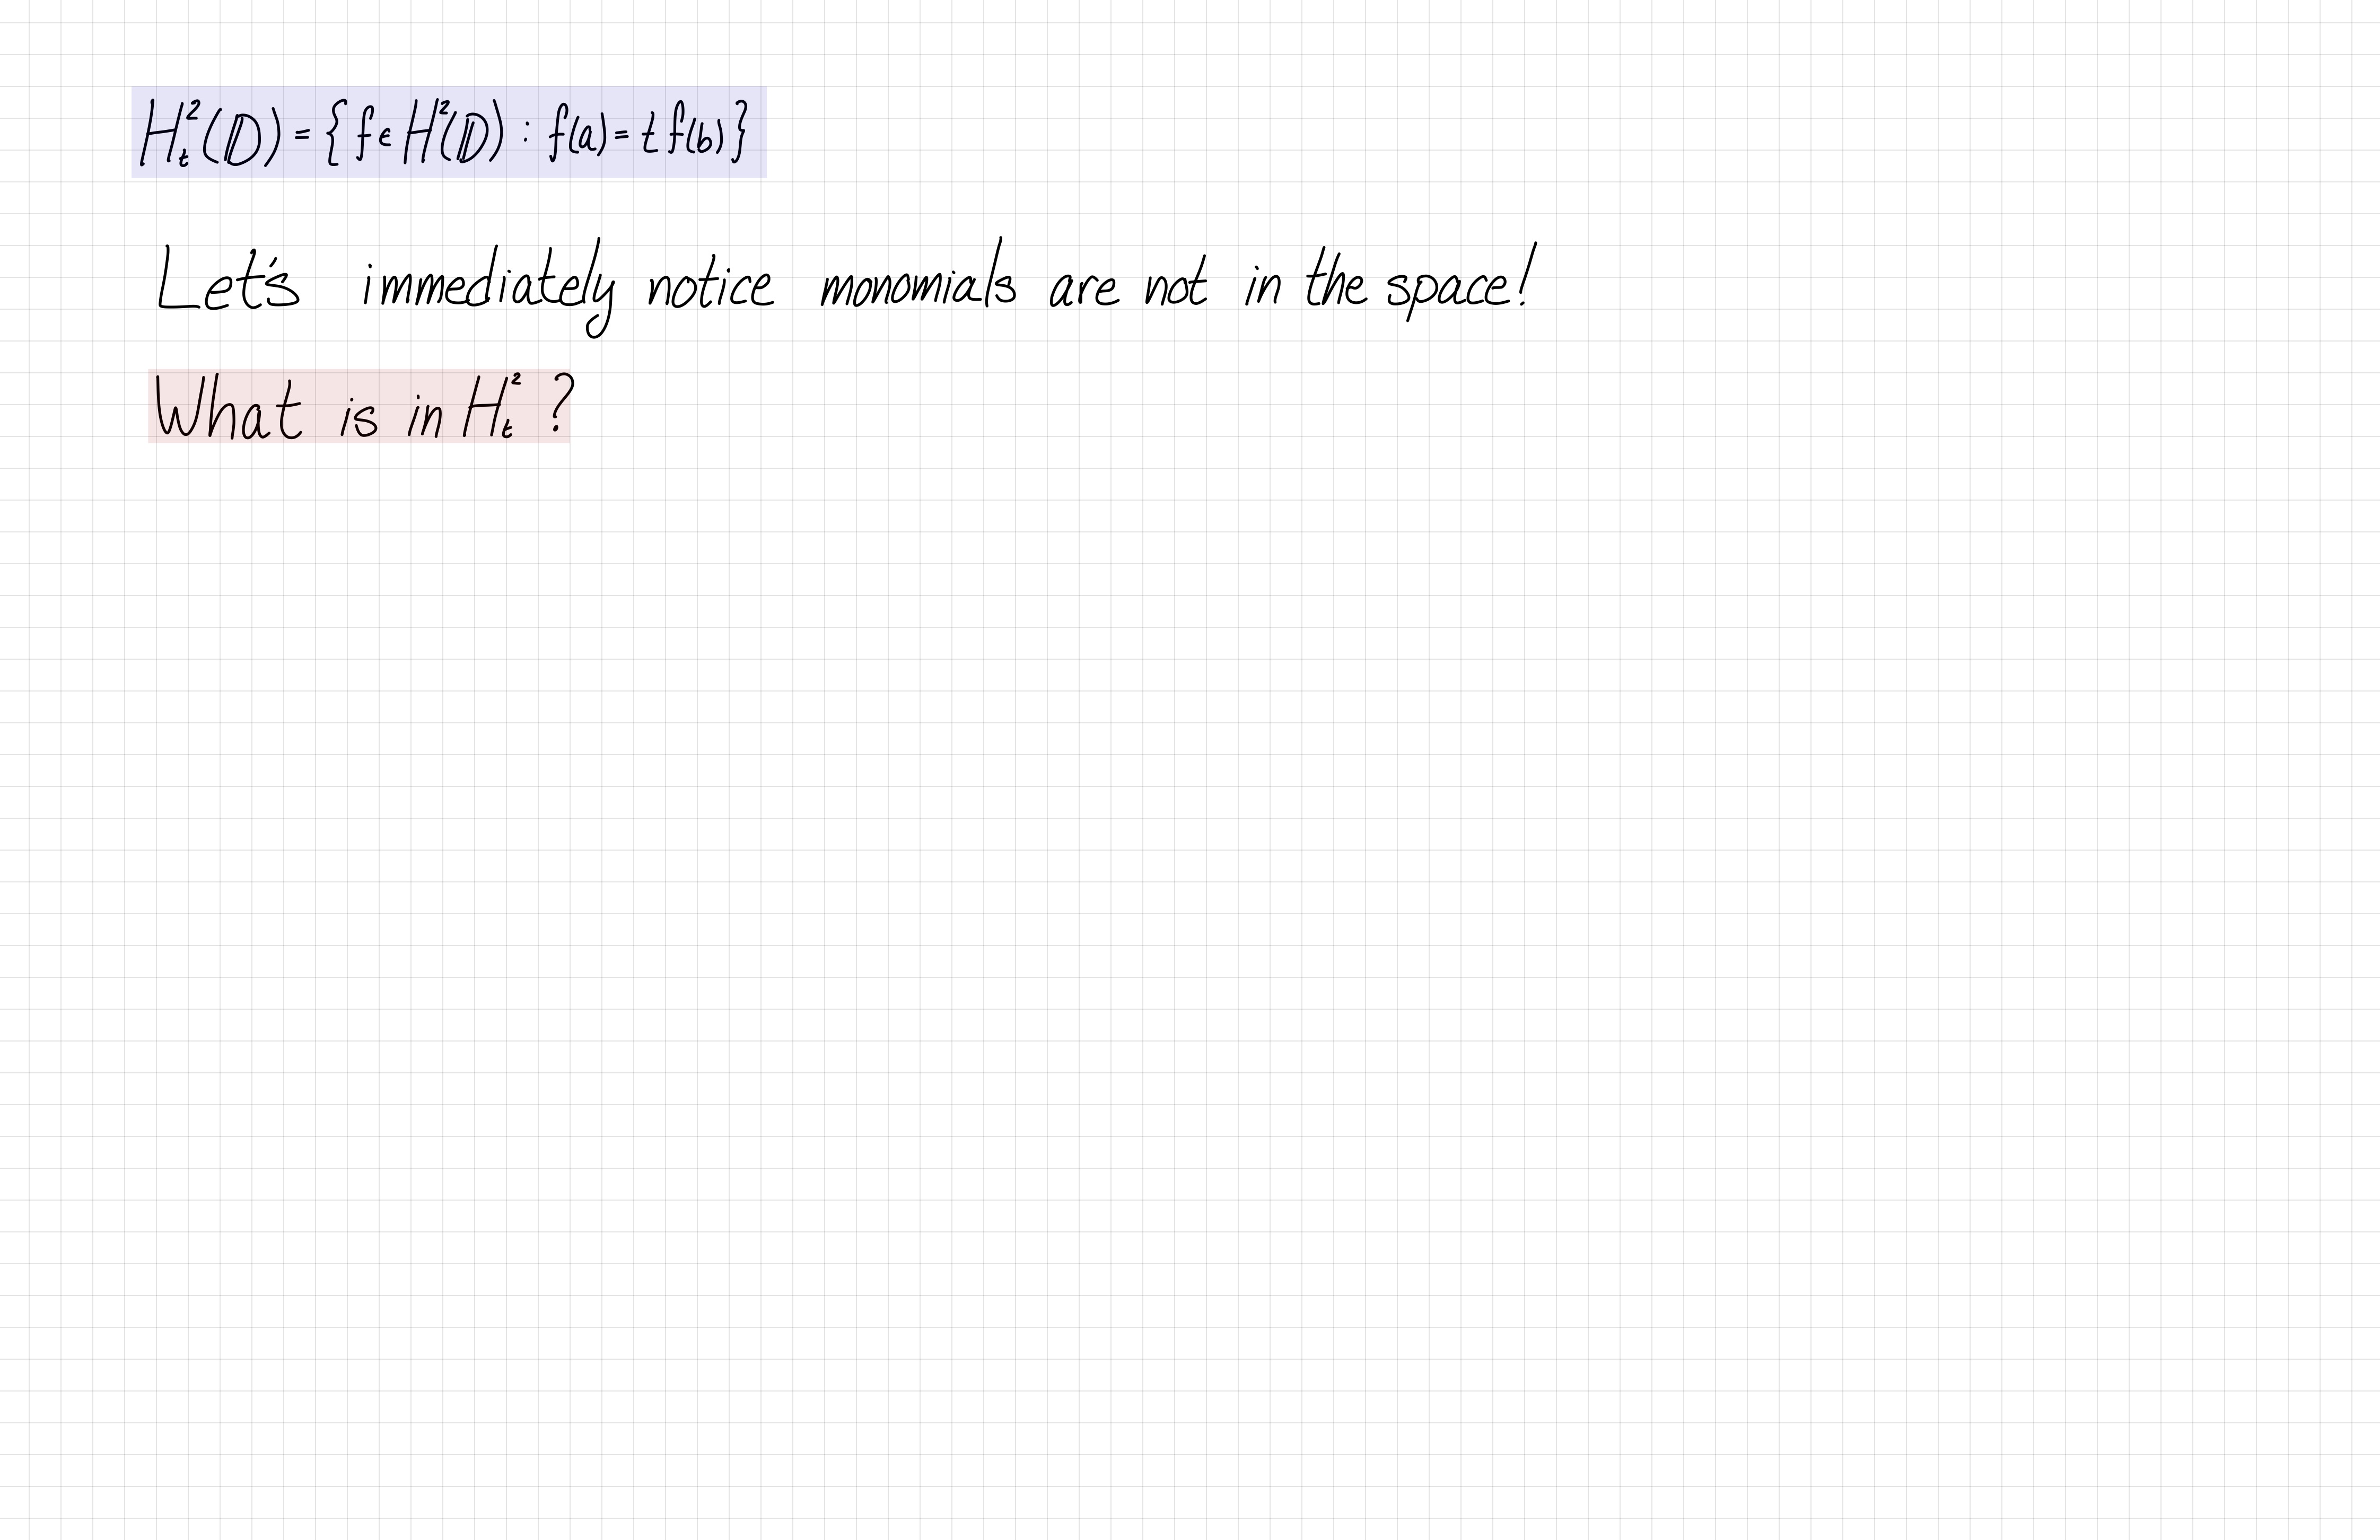 H²ₜ(𝔻) = {f ∈ H²(𝔻) : f(a) = t f(b)}
Let's immediately notice monomials are not in the space!
What is in H²ₜ ?